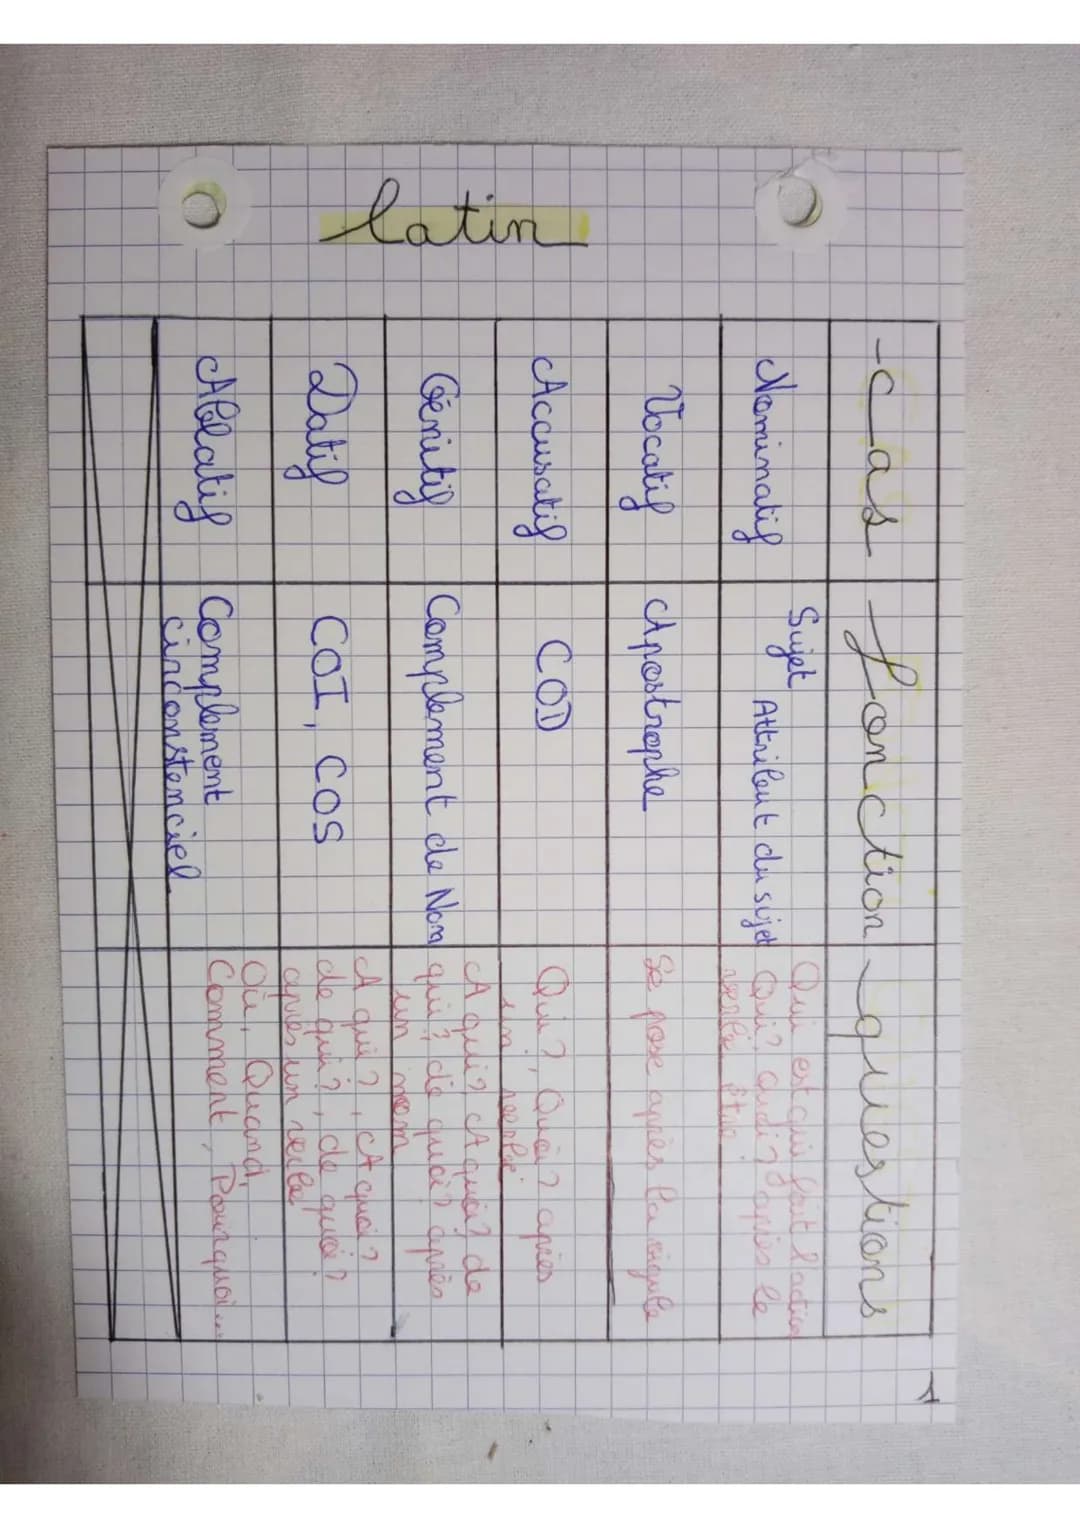 latin
-cas -fonction -questions
Nominatif Sujet Attribut du sujet Qui est qui fait l'action
Qui?, quoi? après le
verbe être
Vocatif Apostrophe Se pose après la virgule
Accusatif COD Qui?, Quoi? après
un verbe
Génitif Complément de Nom A qui?, A quoi? de
qui?, de quoi? après
un nom
Datif COI, COS A qui?, A quoi?
de qui?, de quoi?
après un verbe
Ablatif Complément
circonstenciel Où, Quand,
Comment, Pourquoi...
1